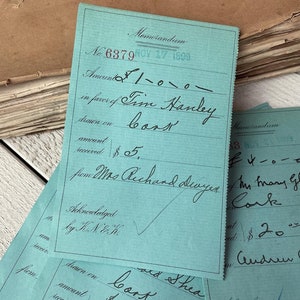 Memorandum
No 6379 NOV 17 1898
Amount £1-0-0-
in favor of Tim Hanley
drawn on Cork
amount
received $5.
from Mrs Richard Dwyer
Acknowledged
by K.N.&K.
Memorandum
£4-0-0-
Mrs Mary
Cork
$20
Andrew
Shea
drawn on Cork
amount